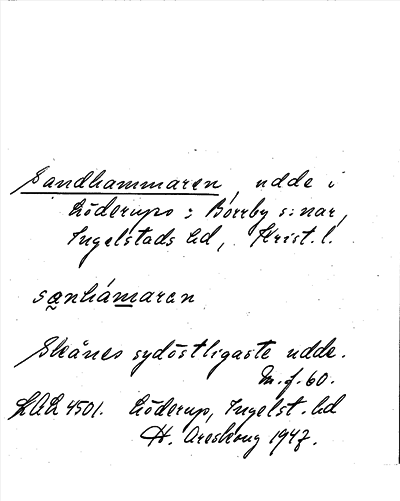 Sandhammaren, udde i
Löderups : Borrby s:nar,
Ingelstads hd, Krist. l.
sanhámaren
Skånes sydöstligaste udde.
M.f. 60.
LAL 4501. Löderup, Ingelst. hd
H. Areskoug 1947.